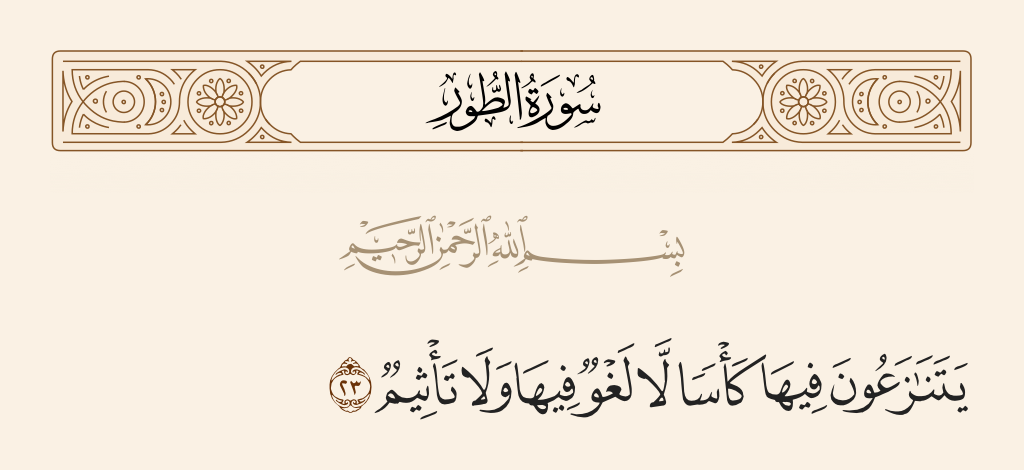 سُورَةُ الطُّورِ
بِسْمِ ٱللَّهِ ٱلرَّحْمَٰنِ ٱلرَّحِيمِ
يَتَنَٰزَعُونَ فِيهَا كَأْسًا لَّا لَغْوٌ فِيهَا وَلَا تَأْثِيمٌ ٢٣